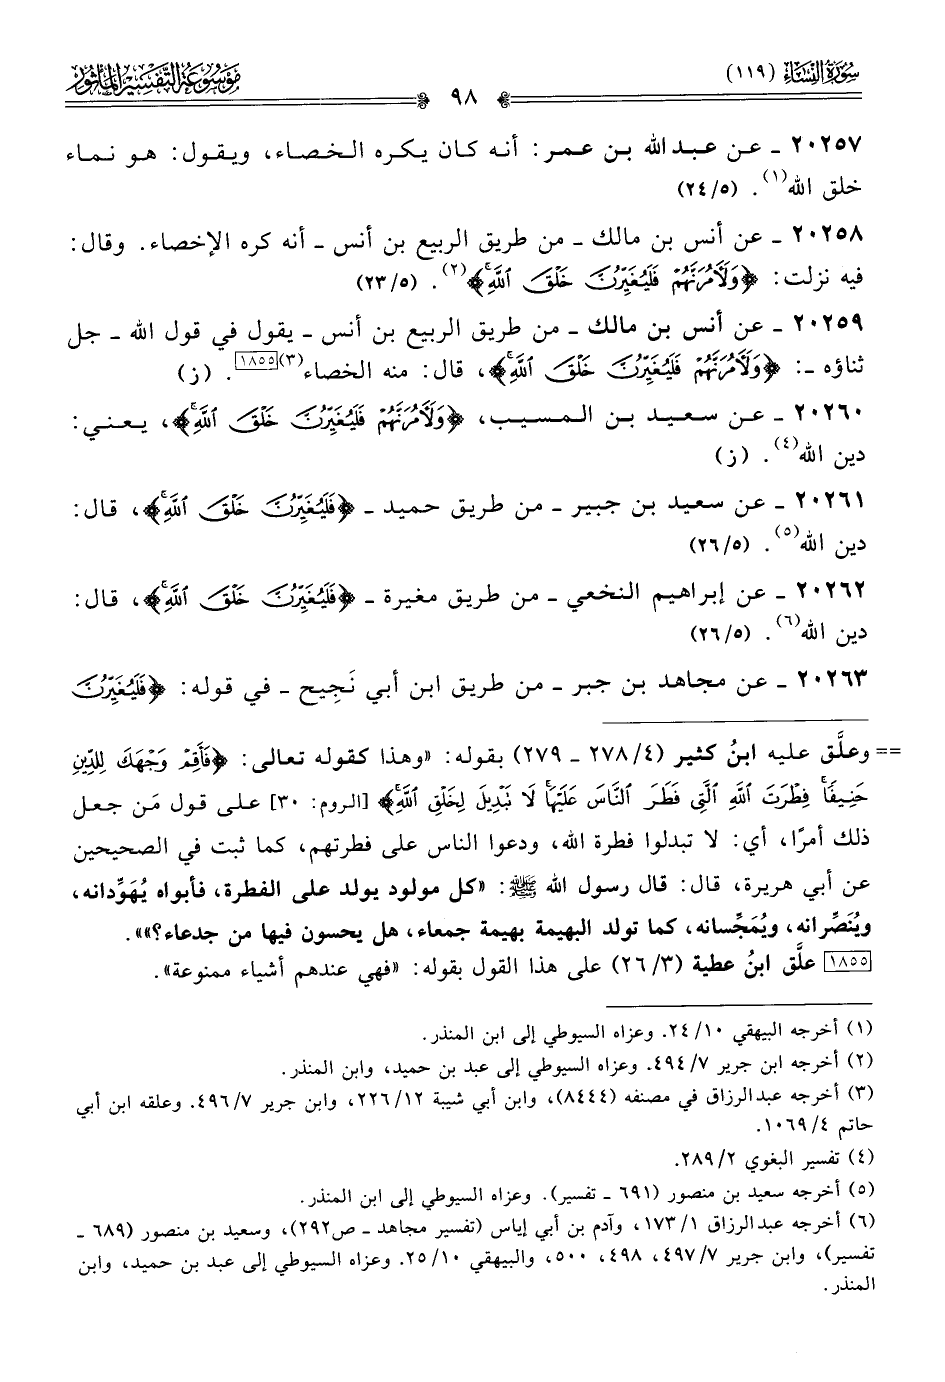 سورة النساء (١١٩)
٩٨
موسوعة التفسير المأثور
٢٠٢٥٧ ـ عن عبد الله بن عمر: أنه كان يكره الخصاء، ويقول: هو نماء
خلق الله(١). (٢٤/٥)
٢٠٢٥٨ ـ عن أنس بن مالك ـ من طريق الربيع بن أنس ـ أنه كره الإخصاء. وقال:
فيه نزلت: ﴿وَلَآمُرَنَّهُمْ فَلَيُغَيِّرُنَّ خَلْقَ ٱللَّهِۚ﴾(٢). (٢٣/٥)
٢٠٢٥٩ ـ عن أنس بن مالك ـ من طريق الربيع بن أنس ـ يقول في قول الله ـ جل
ثناؤه ـ: ﴿وَلَآمُرَنَّهُمْ فَلَيُغَيِّرُنَّ خَلْقَ ٱللَّهِۚ﴾، قال: منه الخصاء(٣)[١٨٥٥]. (ز)
٢٠٢٦٠ ـ عن سعيد بن المسيب، ﴿وَلَآمُرَنَّهُمْ فَلَيُغَيِّرُنَّ خَلْقَ ٱللَّهِۚ﴾، يعني:
دين الله(٤). (ز)
٢٠٢٦١ ـ عن سعيد بن جبير ـ من طريق حميد ـ ﴿فَلَيُغَيِّرُنَّ خَلْقَ ٱللَّهِۚ﴾، قال:
دين الله(٥). (٢٦/٥)
٢٠٢٦٢ ـ عن إبراهيم النخعي ـ من طريق مغيرة ـ ﴿فَلَيُغَيِّرُنَّ خَلْقَ ٱللَّهِۚ﴾، قال:
دين الله(٦). (٢٦/٥)
٢٠٢٦٣ ـ عن مجاهد بن جبر ـ من طريق ابن أبي نَجيح ـ في قوله: ﴿فَلَيُغَيِّرُنَّ
== وعلَّق عليه ابنُ كثير (٤/ ٢٧٨ ـ ٢٧٩) بقوله: «وهذا كقوله تعالى: ﴿فَأَقِمْ وَجْهَكَ لِلدِّينِ
حَنِيفًاۚ فِطْرَتَ ٱللَّهِ ٱلَّتِي فَطَرَ ٱلنَّاسَ عَلَيْهَاۚ لَا تَبْدِيلَ لِخَلْقِ ٱللَّهِۚ﴾ [الروم: ٣٠] على قول مَن جعل
ذلك أمرًا، أي: لا تبدلوا فطرة الله، ودعوا الناس على فطرتهم، كما ثبت في الصحيحين
عن أبي هريرة، قال: قال رسول الله ﷺ: «كل مولود يولد على الفطرة، فأبواه يُهَوِّدانه،
ويُنَصِّرانه، ويُمَجِّسانه، كما تولد البهيمة بهيمة جمعاء، هل يحسون فيها من جدعاء؟»».
[١٨٥٥] علَّق ابنُ عطية (٣/ ٢٦) على هذا القول بقوله: «فهي عندهم أشياء ممنوعة».
(١) أخرجه البيهقي ١٠/ ٢٤. وعزاه السيوطي إلى ابن المنذر.
(٢) أخرجه ابن جرير ٧/ ٤٩٤. وعزاه السيوطي إلى عبد بن حميد، وابن المنذر.
(٣) أخرجه عبدالرزاق في مصنفه (٨٤٤٤)، وابن أبي شيبة ١٢/ ٢٢٦، وابن جرير ٧/ ٤٩٦. وعلقه ابن أبي
حاتم ٤/ ١٠٦٩.
(٤) تفسير البغوي ٢/ ٢٨٩.
(٥) أخرجه سعيد بن منصور (٦٩١ ـ تفسير). وعزاه السيوطي إلى ابن المنذر.
(٦) أخرجه عبدالرزاق ١/ ١٧٣، وآدم بن أبي إياس (تفسير مجاهد ـ ص٢٩٢)، وسعيد بن منصور (٦٨٩ ـ
تفسير)، وابن جرير ٧/ ٤٩٧، ٤٩٨، ٥٠٠، والبيهقي ١٠/ ٢٥. وعزاه السيوطي إلى عبد بن حميد، وابن
المنذر.